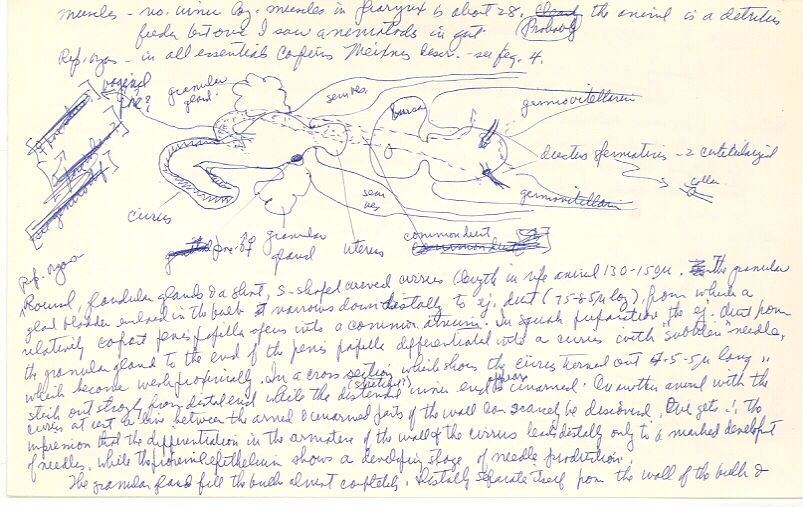 muscles - no. inner long. muscles in pharynx is about 28. the animal is a detritus
feeder but once I saw a nematode in gut (Probably
Rep. organs - in all essentials confirms Meixner descr. - see fig. 4.
vaginal
granular
gland.
sem ves.
bursa
germovitellarium
ductus spermaticus - 2 cuticularized
collar
germovitellarium
sem
ves
cirrus
granular
gland
uterus
common duct
Rep. organs
Round, glandular glands & a short, S-shaped curved cirrus (length in life animal 130-150µ. the granular
gland bladder enclosed in the bulb narrows down distally to ej. duct (75-85µ long), from which a
relatively penis papilla opens into a common atrium. In squash preparation the ej. duct from
the granular gland to the end of the penis papilla differentiated into a cirrus with "subtle" needle,
which become weak proximally. In a cross section which shows the cirrus turned out 4.5-5µ long
(sagittal?)
stick out from distal end while the inner end appears unarmed. In another animal with the
cirrus at rest a line between the armed & unarmed parts of the wall can scarcely be discerned. One gets the
impression that the differentiation in the armature of the wall of the cirrus leads distally only to a marked developmt
of needles, while the proximal epithelium shows a developing stage of needle production.
The granular gland fill the bulb almost completely. Distally separate itself from the wall of the bulb &